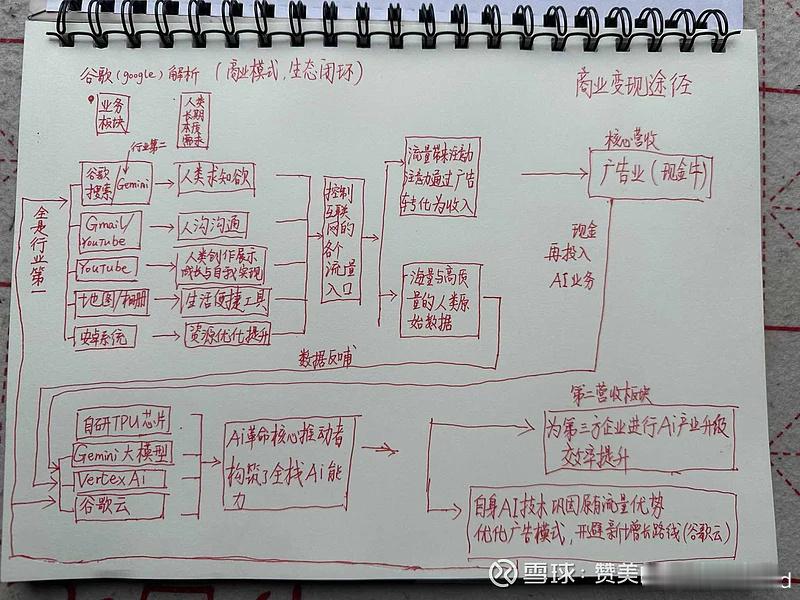 谷歌(google)解析 (商业模式,生态闭环)
商业变现途径
业务
板块
人类
长期
本质
需求
行业第二
谷歌
搜索/Gemini
人类求知欲
Gmail/
YouTube
人沟沟通
YouTube
人类创作展示
成长与自我实现
地图/相册
生活便捷工具
安卓系统
资源优化提升
全是行业第一
控制
互联
网的
各个
流量
入口
流量带来注意力
注意力通过广告
转化为收入
海量与高质
量的人类原
始数据
核心营收
广告业(现金牛)
现金
再投入
AI业务
数据反哺
自研TPU芯片
Gemini大模型
Vertex Ai
谷歌云
Ai革命核心推动者
构筑了全栈Ai能
力
第二营收板块
为第三方企业进行Ai产业升级
效率提升
自身AI技术巩固原有流量优势
优化广告模式,开辟新增长路线(谷歌云)
雪球:赞美
d